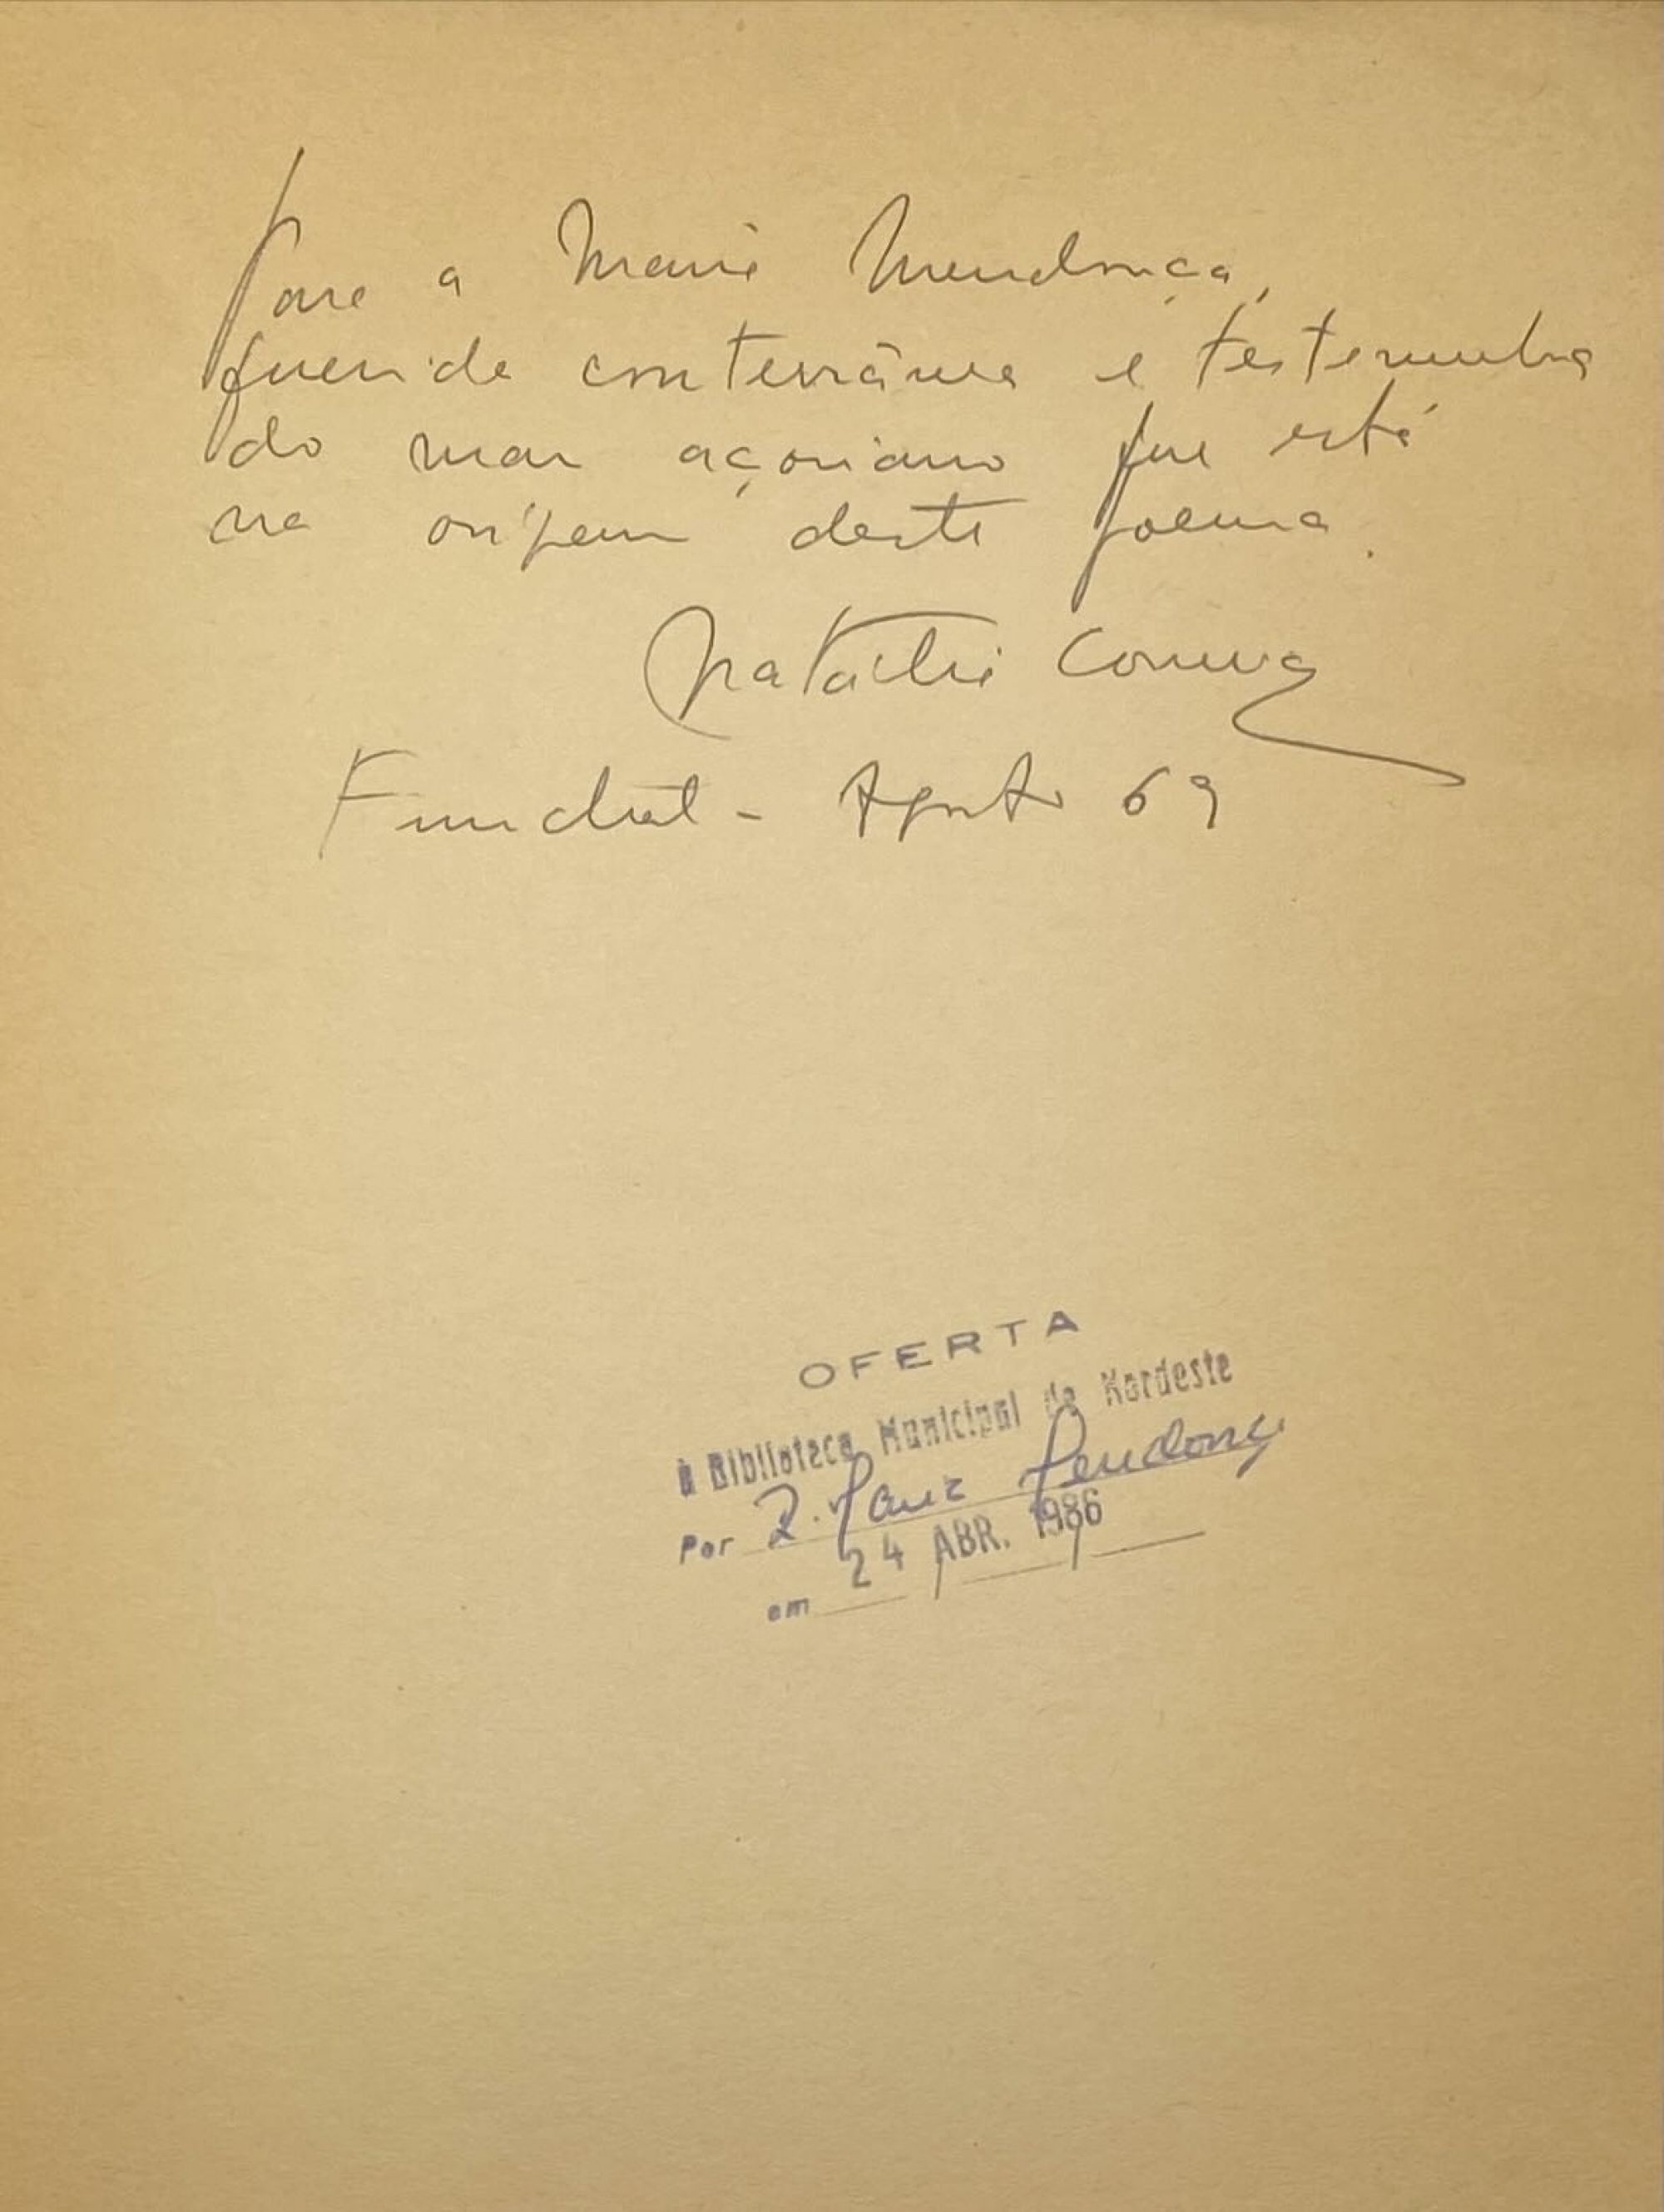 Para a Maria Mendonça,
querida conterrânea e testemunha
do mar açoriano que está
na origem deste poema.
Natália Correia
Funchal - Agosto 69
OFERTA
à Biblioteca Municipal de Nordeste
Por D. Maria Mendonça
em 24 ABR. 1986